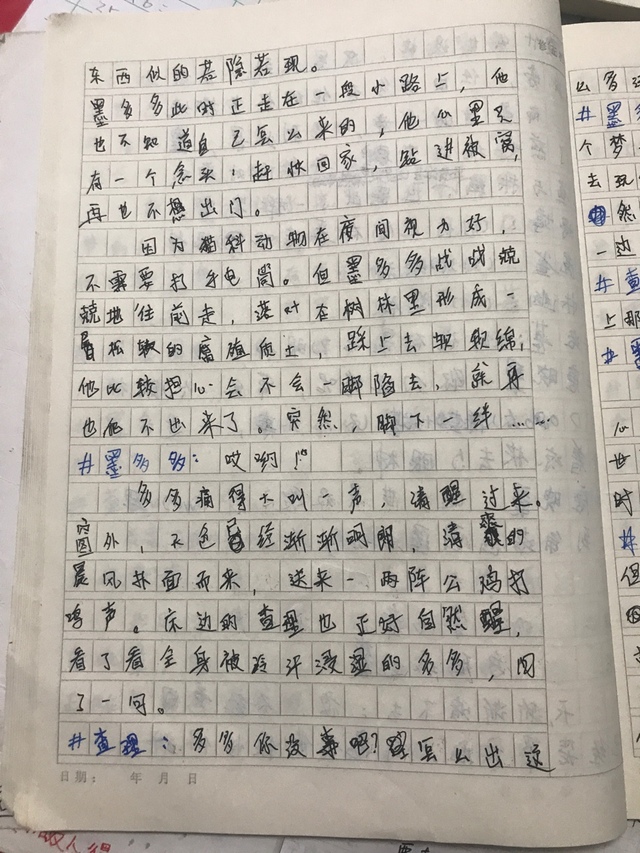 东西似的若隐若现。
墨多多此时正走在一段小路上，他
也不知道自己怎么来的，他心里只
有一个念头：赶快回家，钻进被窝，
再也不想出门。
因为猫科动物在夜间视力好，
不需要打手电筒。但墨多多战战兢
兢地往前走，落叶在树林里形成一
层松软的腐殖质土，踩上去软软绵，
他比较担心会不会一脚陷去，就再
也爬不出来了。突然，脚下一绊……
#墨多多：哎哟！
多多痛得大叫一声，清醒过来。
窗外，天色已经渐渐明朗，清爽的
晨风扑面而来，送来一两阵公鸡打
鸣声。床边的查理也正好自然醒，
看了看全身被冷汗浸湿的多多，问
了一问。
#查理：多多你没事吧？怎么出这
日期： 年 月 日
么多
#墨
个梦
去现
然
一边
#查
上那
#墨
心
世
时
#
但